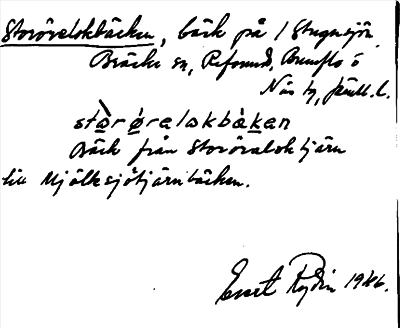 Storövelokbäcken, bäck på 1 Stugusjön,
Bräcke sn, Refsund, Brunflo o
Näs tg, Jämtl. l.
störörelokbäkan
Bäck från Storöveloktjärn
till Mjölksjötjärnbäcken.
Evert Rydin 1946.